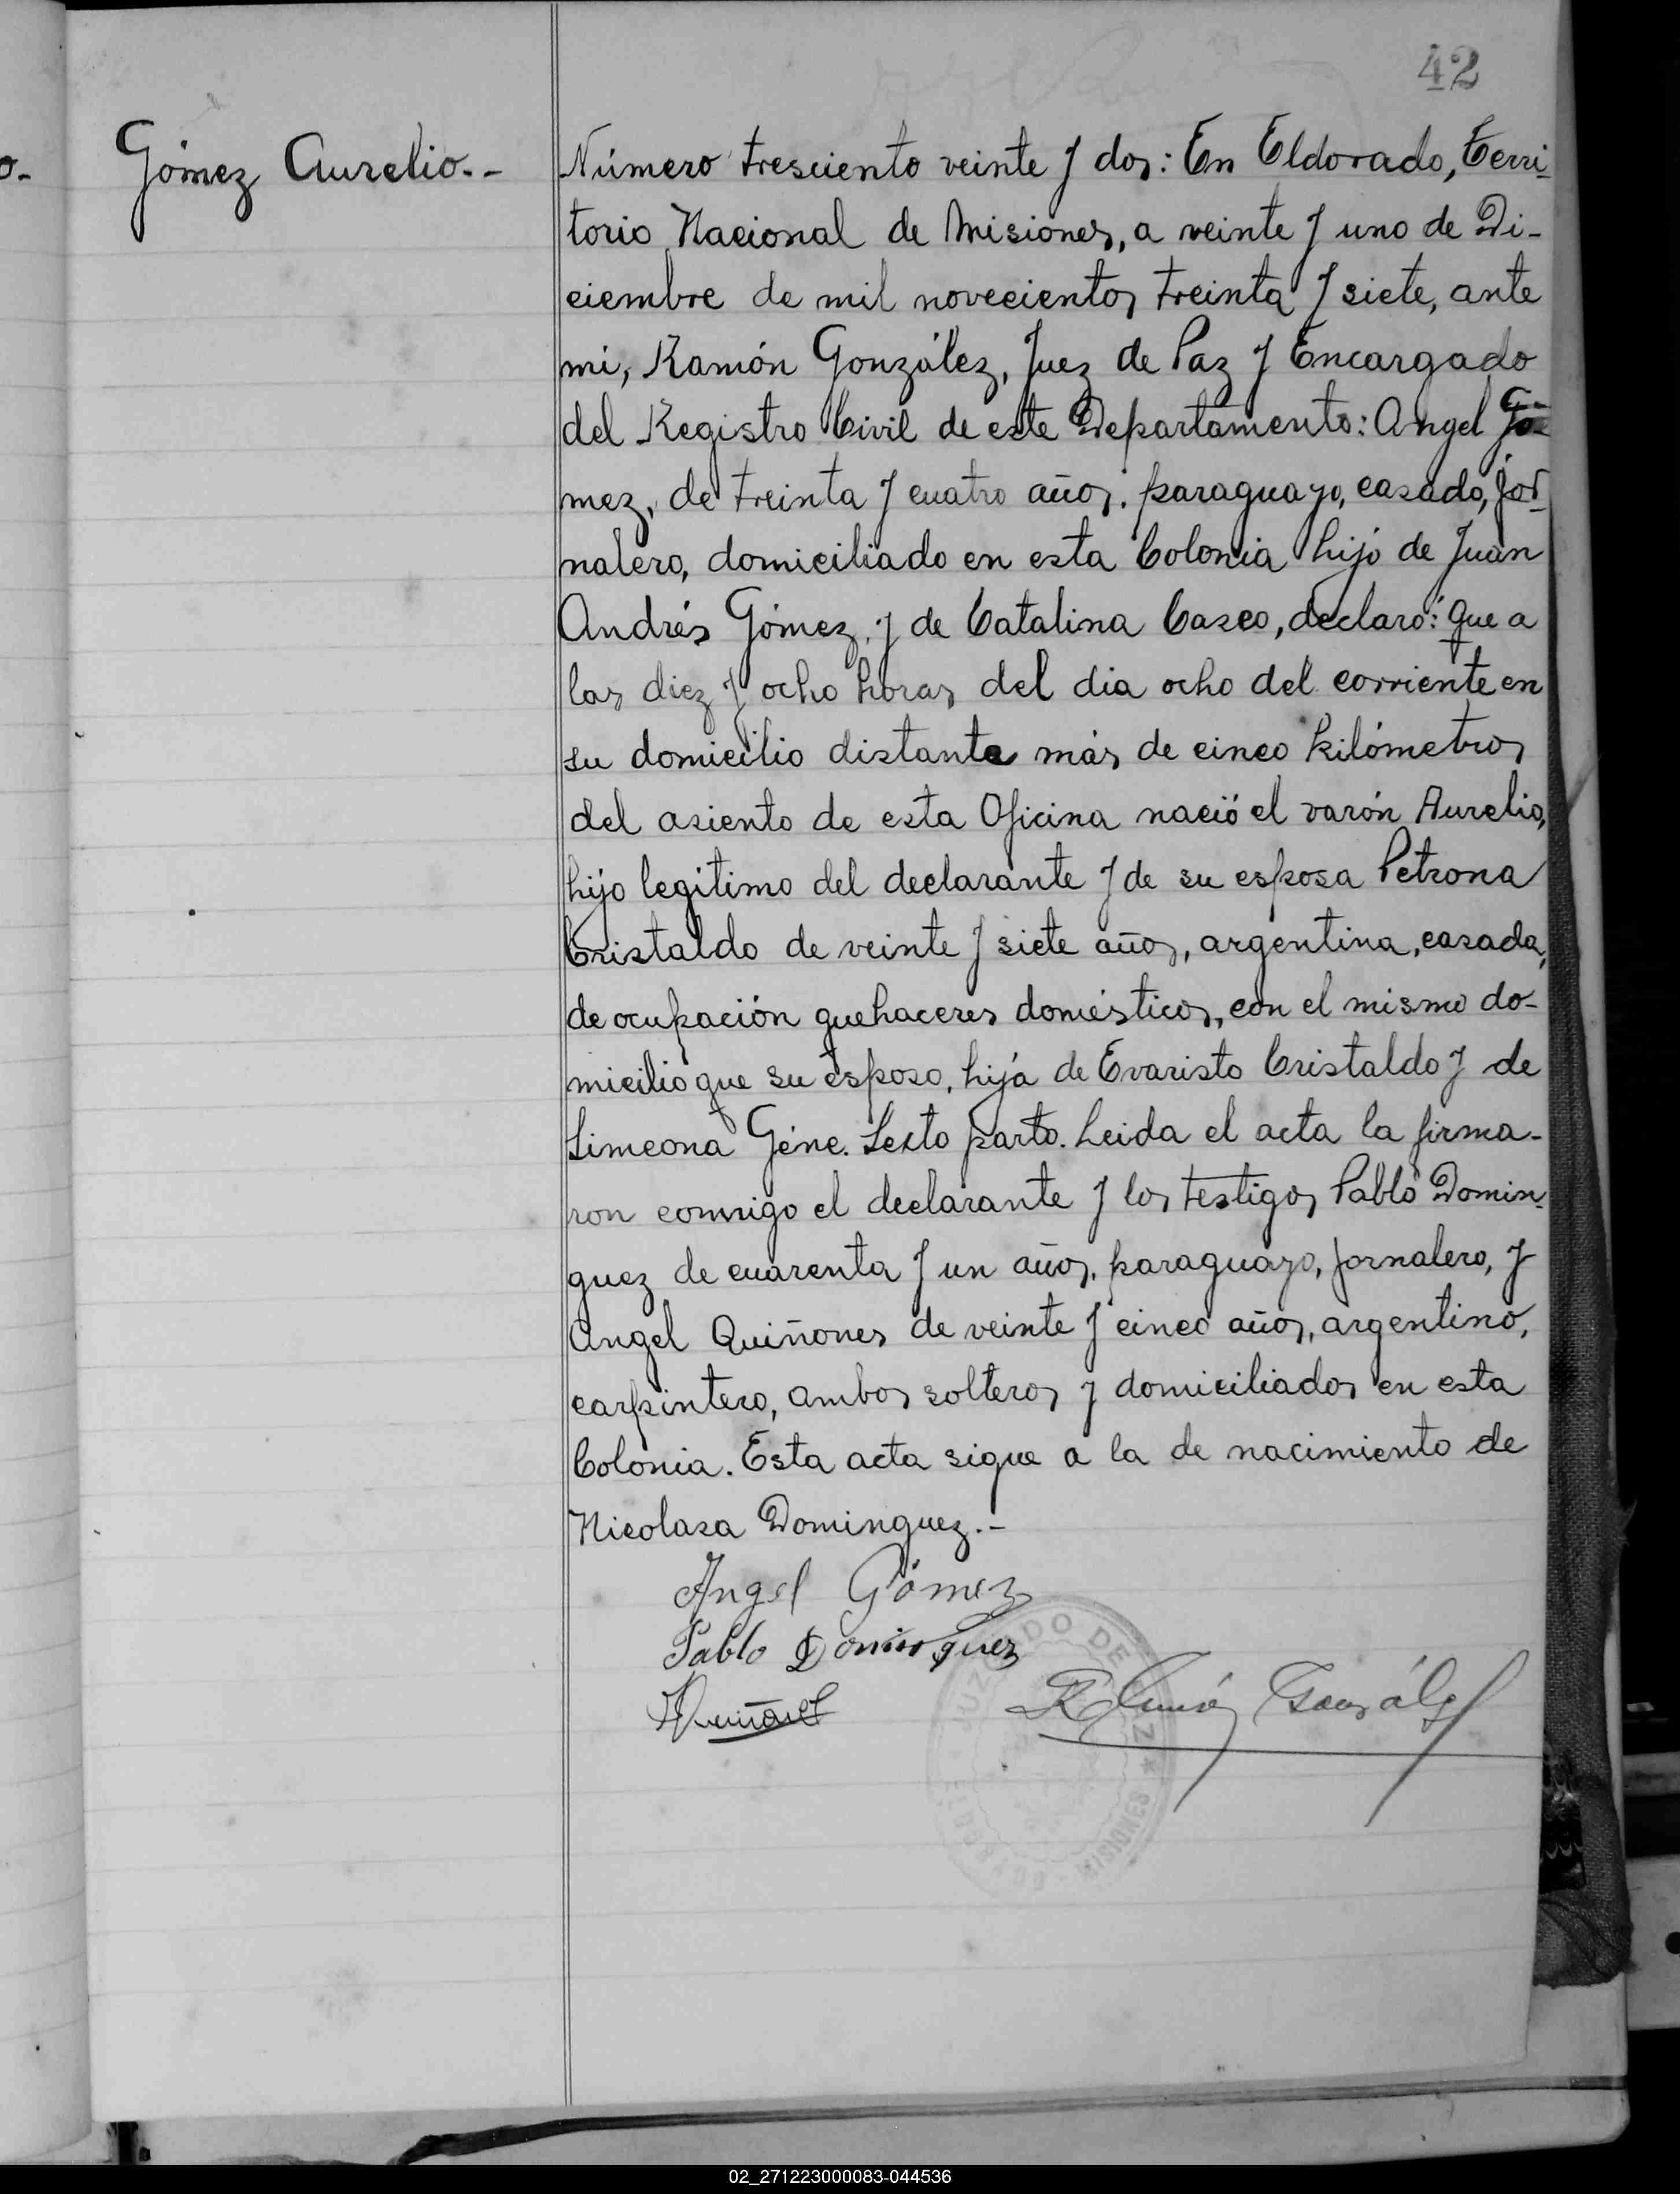 42
o.-
Gómez Aurelio.--
Número tresciento veinte y dos: En Eldorado, Terri-
torio Nacional de Misiones, a veinte y uno de Di-
ciembre de mil novecientos treinta y siete, ante
mi, Ramón González, Juez de Paz y Encargado
del Registro Civil de este Departamento: Angel Gó-
mez, de treinta y cuatro años, paraguayo, casado, jor-
nalero, domiciliado en esta Colonia hijo de Juan
Andrés Gómez, y de Catalina Casco, declaró: Que a
las diez y ocho horas del dia ocho del corriente en
su domicilio distante más de cinco kilómetros
del asiento de esta Oficina nació el varón Aurelio,
hijo legítimo del declarante y de su esposa Petrona
Cristaldo de veinte y siete años, argentina, casada,
de ocupación quehaceres domésticos, con el mismo do-
micilio que su esposo, hija de Evaristo Cristaldo y de
Simeona Géne. Sexto parto. Leida el acta la firma-
ron conmigo el declarante y los testigos Pablo Domin-
guez de cuarenta y un años, paraguayo, jornalero, y
Angel Quiñones de veinte y cinco años, argentino,
carpintero, ambos solteros y domiciliados en esta
Colonia. Esta acta sigue a la de nacimiento de
Nicolasa Dominguez.-
Angel Gómez
Pablo Dominguez
Ramón González
JUZGADO DE PAZ * MISIONES - ELDORADO
02_271223000083-044536